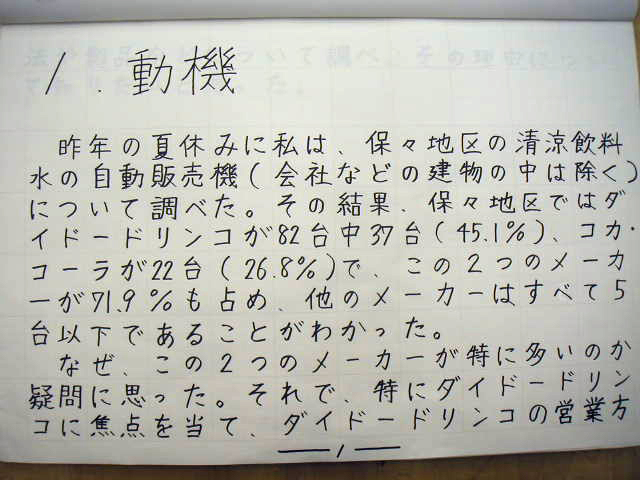 1. 動機
昨年の夏休みに私は、保々地区の清涼飲料
水の自動販売機(会社などの建物の中は除く)
について調べた。その結果、保々地区ではダ
イドードリンコが82台中37台(45.1%)、コカ・
コーラが22台(26.8%)で、この2つのメーカ
ーが71.9%も占め、他のメーカーはすべて5
台以下であることがわかった。
なぜ、この2つのメーカーが特に多いのか
疑問に思った。それで、特にダイドードリン
コに焦点を当て、ダイドードリンコの営業方
1